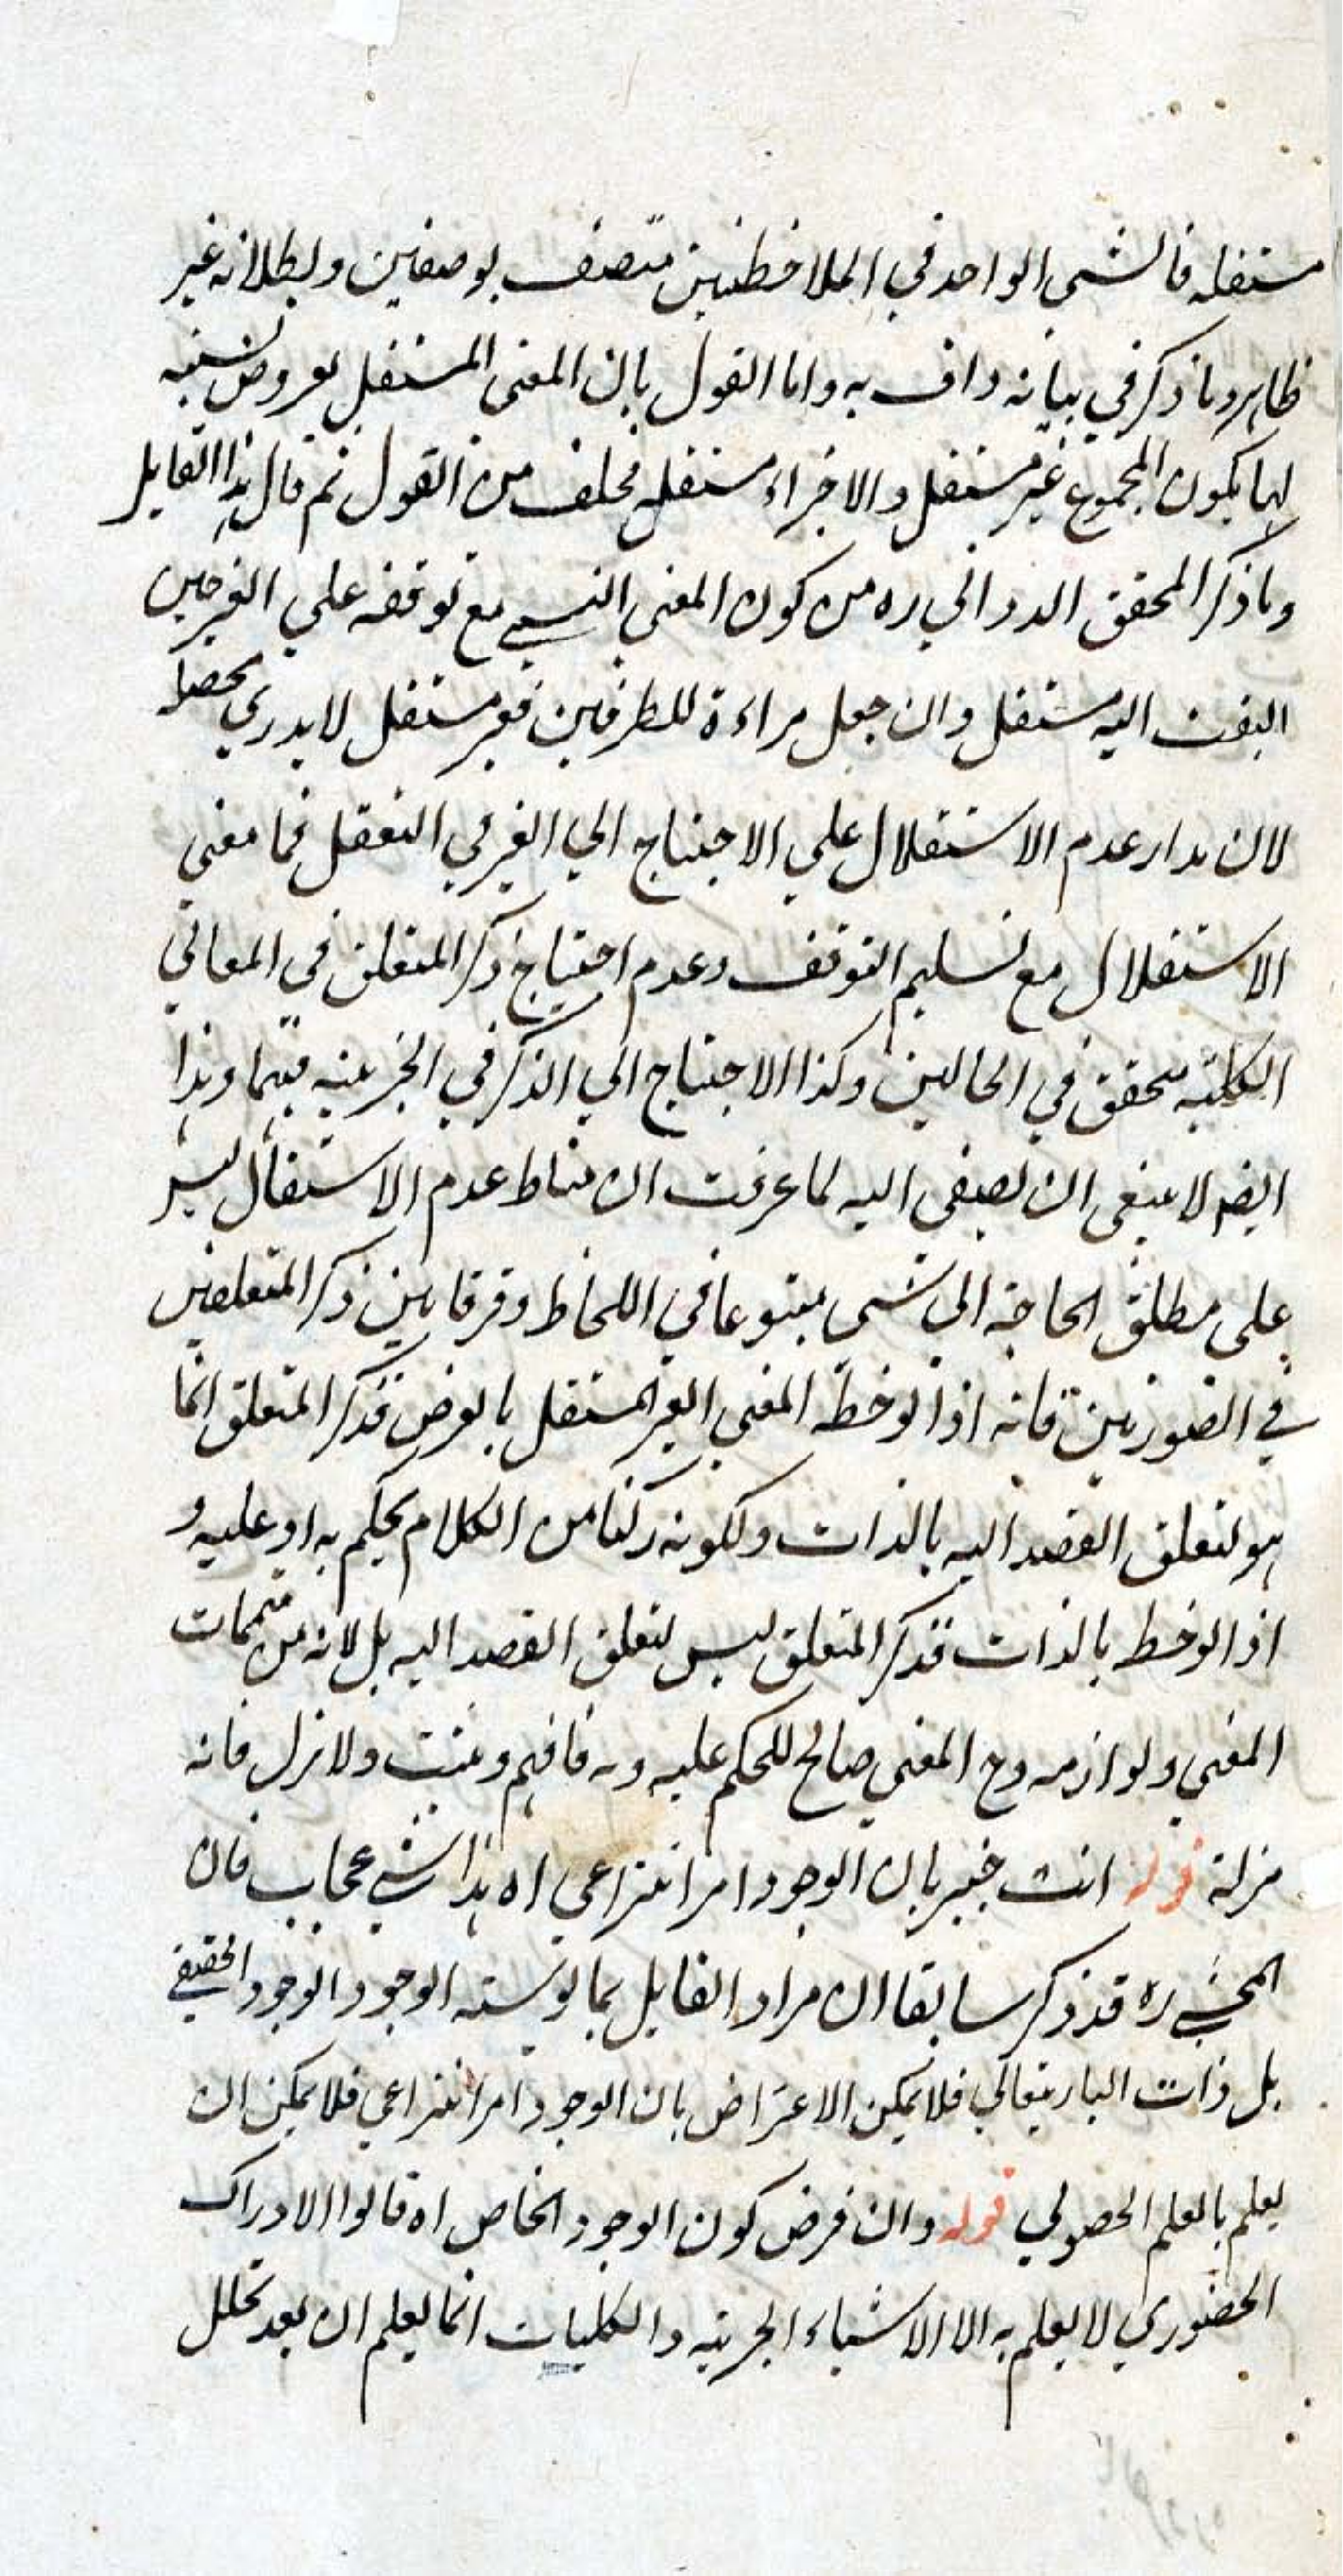 مستقله فالشي الواحد في الملاحظتين متصف بوصفين وبطلانه غير
ظاهر وما ذكر في بيانه واف به واما القول بان المعنى المستقل بعروض نسبته
لها يكون المجموع غير مستقل والاجزاء مستقله فخلف من القول ثم قال هذا القايل
وما ذكر المحقق الدواني ره من كون المعنى النسبي مع توقفه على الغير حين
التفت اليه مستقل وان جعل مراءة للطرفين فغير مستقل لا يدرى محصله
لان مدار عدم الاستقلال علي الاحتياج الي الغير في التعقل فما معنى
الاستقلال مع تسليم التوقف وعدم احتياج ذكر المتعلق في المعاني
الكلية متحقق في الحالين وكذا الاحتياج الي الذكر في الجزئيه منهما وهذا
ايضا لا ينبغي ان يصغى اليه لما عرفت ان مناط عدم الاستقلال ليس
على مطلق الحاجة الى شي متبوعا في اللحاظ وفرقا بين ذكر المتعلقين
في الصورتين فانه اذا لوحظ المعنى الغير المستقل بالعرض فذكر المتعلق انما
هو لتعلق القصد اليه بالذات ولكونه ركنا من الكلام يحكم به او عليه و
اذا لوحظ بالذات فذكر المتعلق ليس لتعلق القصد اليه بل لانه من متممات
المعنى ولوازمه وح المعنى صالح للحكم عليه وبه فافهم وتثبت ولا تزل فانه
مزلة قوله انت خبير بان الوجود امر انتزاعي اه هذا شي عجاب فان
المحشي ره قد ذكر سابقا ان مراد القايل بما الوجود الوجود الحقيقي
بل ذات الباري تعالي فلا يمكن الاعتراض بان الوجود امر انتزاعي فلا يمكن ان
يعلم بالعلم الحصولي قوله وان فرض كون الوجود الخاص اه قالوا الادراك
الحضوري لا يعلم به الا الاشياء الجزئيه والكليات انما يعلم ان بعد تحلل